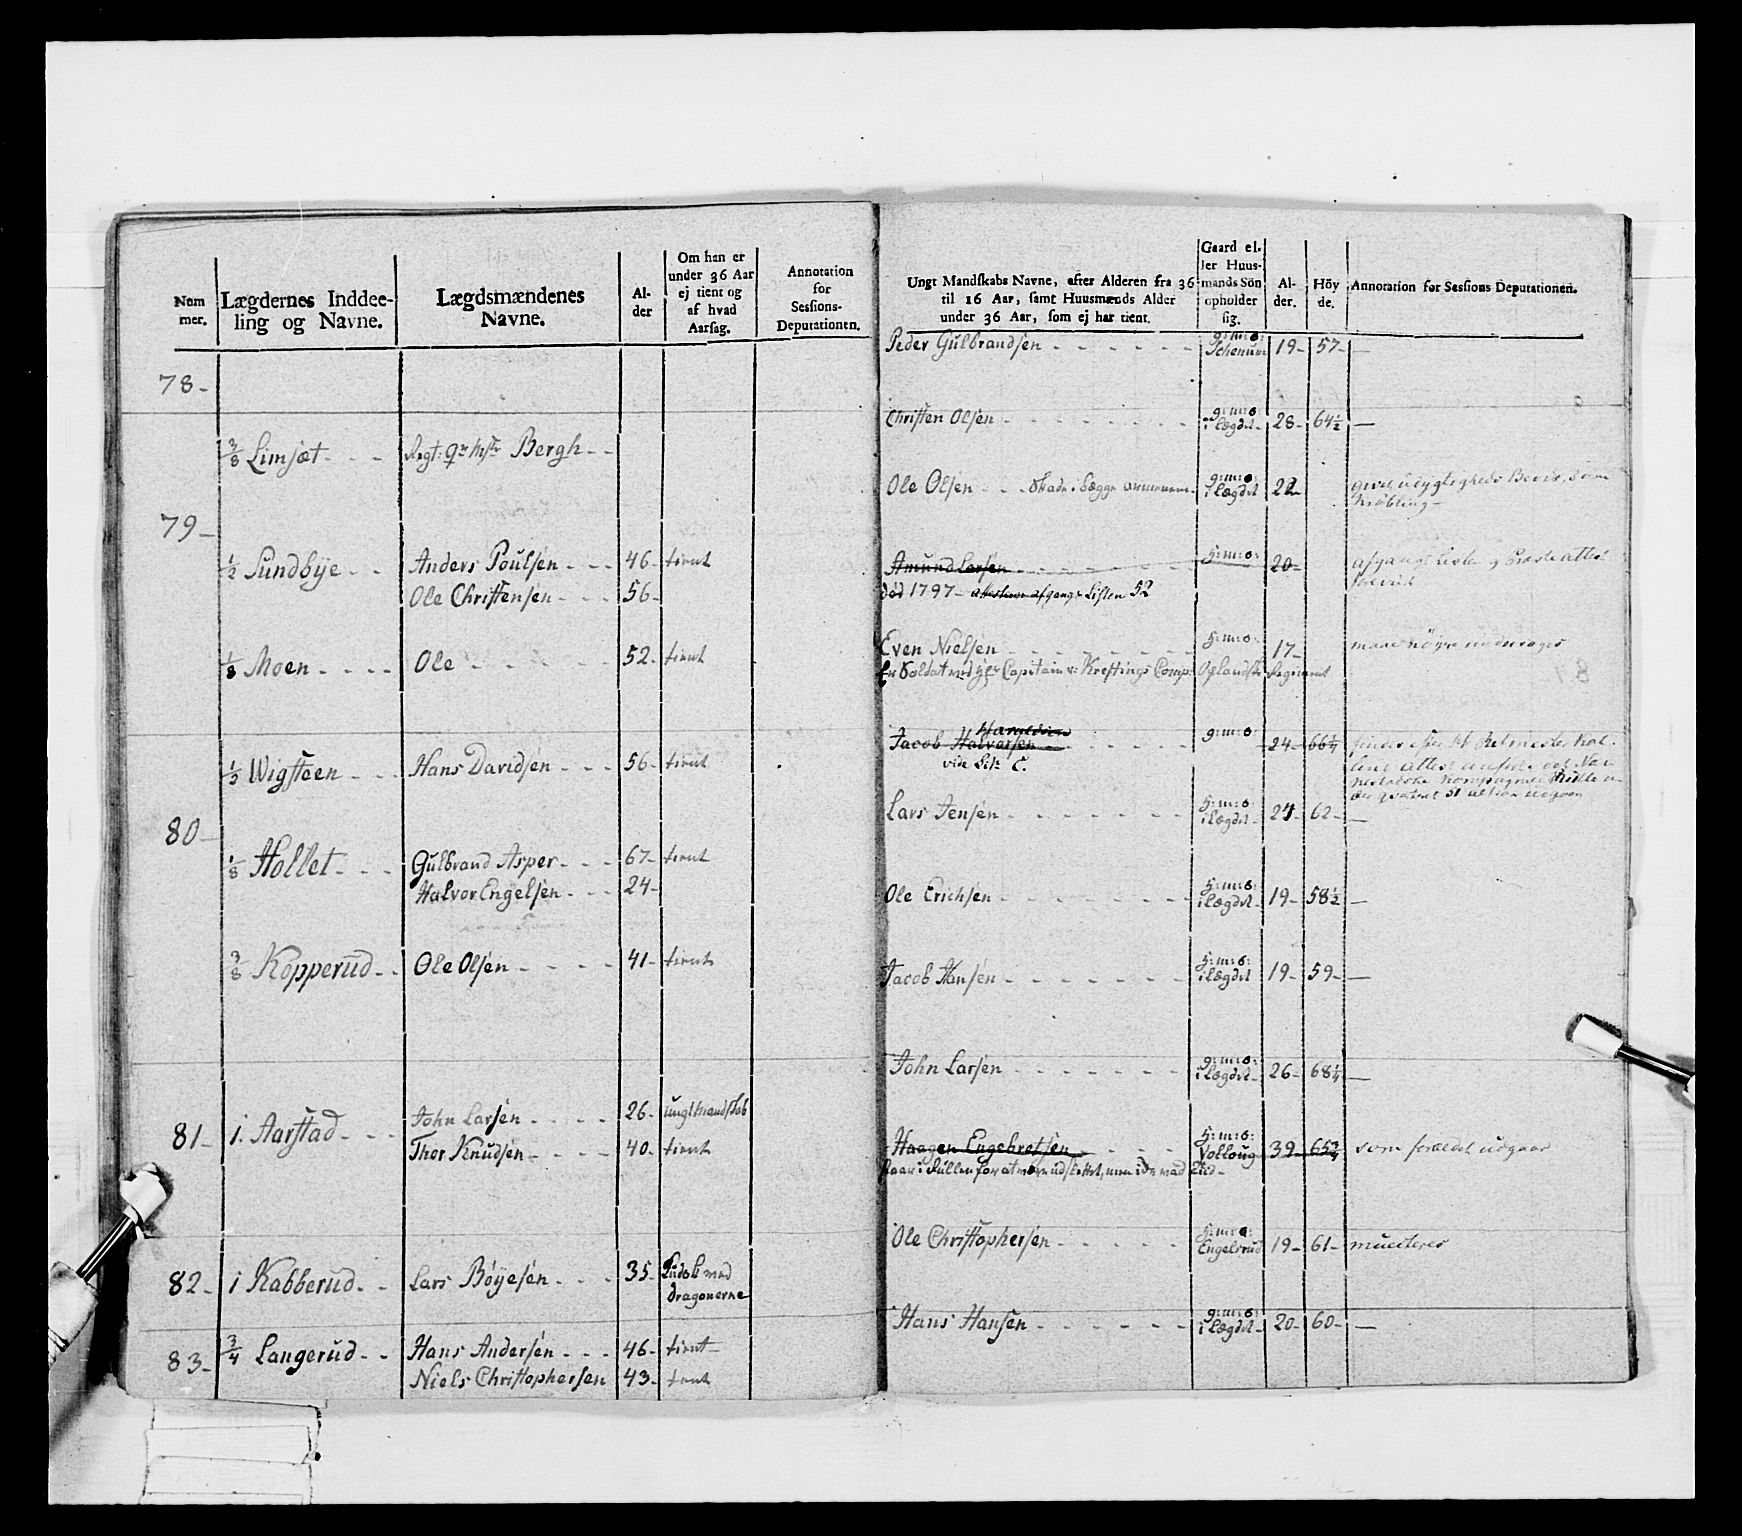 Nom
mer.
Lægdernes Inddee-
ling og Navne.
Lægdsmændenes
Navne.
Al-
der
Om han er
under 36 Aar
ej tient og
af hvad
Aarsag.
Annotation
for
Sessions-
Deputationen.
78-
79-
3/8 Limsæt - - - Regt: Qr Mstr Bergh - -
1/2 Sundbÿe - - Anders Poulsen - - - 46- tient
Ole Christensen - - - 56-
1/8 Moen - - - - Ole - - - - - 52- tient
80-
1/2 Wigsteen - - - Hans Davidsen - - - 56- tient
1/8 Hollet - - - Gulbrand Asper - - - 67- tient
Halvor Engelsen - - - 24-
3/8 Kopperud - - Ole Olsen - - - - 41- tient
81- 1. Aarstad - - - John Larsen - - - - 26- ungt Mandskab
Thor Knudsen - - - - 40- tient
82- 1 Kabberud - - Lars Böÿesen - - - 35- med
dragonerne
83- 3/4 Langerud - - Hans Andersen - - - 46- tient
Niels Christophersen 43- tient
Ungt Mandskabs Navne, efter Alderen fra 36
til 16 Aar, samt Huusmænds Alder
under 36 Aar, som ej har tient.
Gaard el-
ler Huus-
mands Sön
opholder
sig.
Al-
der.
Höy
de.
Annotation for Sessions Deputationen.
Peder Gulbrandsen - - - - - - g:m:s: Schenum 19- 57- —
Christen Olsen - - - - - - - - g:m:s: i Lægdet- 28- 64½ —
Ole Olsen - - - Skade i begge g:m:s: i Lægdet 22- udygtigheds Bevis, som
Krøbling-
Amund Larsen - - - - - - - h:m:s: 20- afgangs Liste
död 1797- afgangs Listen 52
Even Nielsen - - - - - - - - h:m:s: 17- maae nøÿe
Er Soldat ved Capitain v: Kreftings Comp: Oplandske Regiment
Haraldsen
Jacob Halvorsen - - - - - - g:m:s 24- 66¼
vide Litr C.
Lars Jensen - - - - - - - h:m:s i Lægdet- 24 62- —
Ole Erichsen - - - - - - - - h:m:s: i Lægdet- 19- 58½ —
Jacob Hansen - - - - - - - h:m:s: i Lægdet 19- 59- —
John Larsen - - - - - - - g:m:s: i Lægdet- 26- 68¼ —
Haagen Engebretsen - - - - - h:m:s: Volloug 39- 65¾ som forældet udgaar
Staar i Rullen for at være udslettet, men
Ole Christophersen - - - - - h:m:s: Engelsrud 19- 61-
Hans Hansen - - - - - - g:m:s: i Lægdet- 20- 60- —